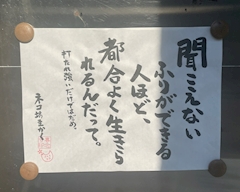 聞こえない
ふりができる
人ほど、
都合よく生きら
れるんだって。
打たれ強いだけではだめ。